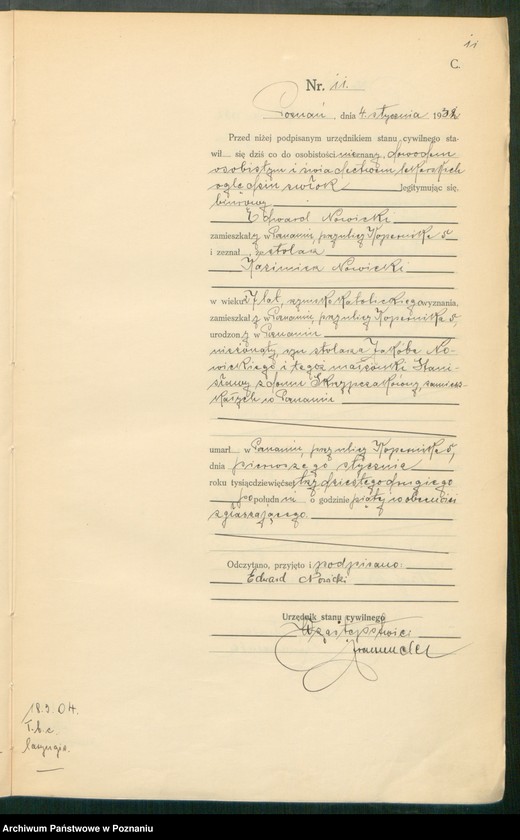 11
C.
Nr. 11.
Poznań, dnia 4. stycznia 1932
Przed niżej podpisanym urzędnikiem stanu cywilnego sta-
wił się dziś co do osobistości nieznany, dowodem
osobistym i świadectwem lekarskich
oględzin zwłok legitymując się,
biurowy
Edward Nowicki
zamieszkały w Poznaniu, przy ulicy Kopernika 5
i zeznał, że stolarz
Kazimierz Nowicki
w wieku 27 lat, rzymsko katolickiego wyznania,
zamieszkały w Poznaniu, przy ulicy Kopernika 5,
urodzony w Poznaniu
nieżonaty, syn stolarza Jakóba No-
wickiego i tegoż małżonki Stani-
sławy z domu Skrzypczakówny, zamiesz-
kałych w Poznaniu
umarł w Poznaniu, przy ulicy Kopernika 5,
dnia pierwszego stycznia
roku tysiącdziewięćset trzydziestego drugiego
po południu o godzinie piątej w obecności
zgłaszającego.
Odczytano, przyjęto i podpisano:
Edward Nowicki
Urzędnik stanu cywilnego
W zastępstwie:
18.9.04.
T.b.c.
laryngis.
Archiwum Państwowe w Poznaniu